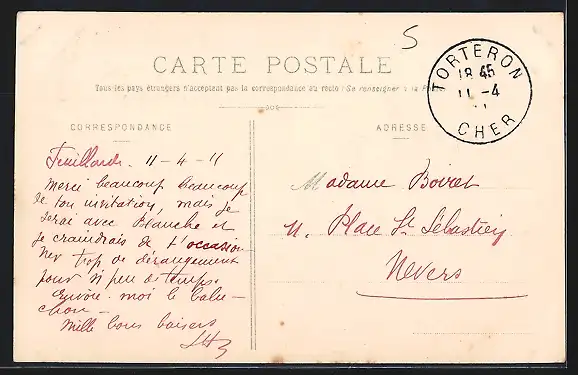 CARTE POSTALE
Tous les pays étrangers n'acceptent pas la correspondance au recto (Se renseigner à la Po
CORRESPONDANCE
ADRESSE
5
TORTERON
18 45
11 -4
11
CHER
Feuillarde. 11-4-11
Merci beaucoup beaucoup
de ton invitation, mais je
serai avec Blanche et
je craindrais de t'occasion
ner trop de dérangement
pour si peu de temps.
Envoie-moi le balu-
chon -
Mille bons baisers
Madame
11. Place St Sébastien
Nevers